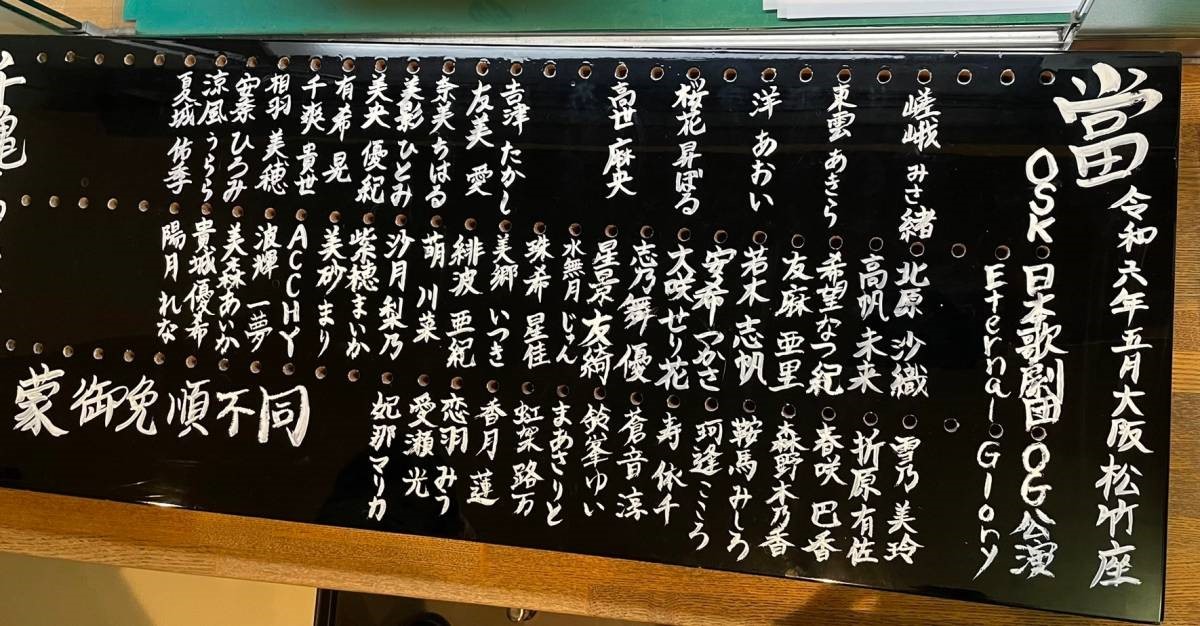 當
令和六年五月大阪松竹座
OSK日本歌劇団OG公演
Eternal Glory
嵯峨 みさ緒
東雲 あきら
洋 あおい
桜花 昇ぼる
高世 麻央
吉津 たかし
友美 愛
奈美 ちはる
美影 ひとみ
美央 優紀
有希 晃
千爽 貴世
相羽 美穂
安奈 ひつみ
涼風 うらら
夏城 佑季
北原 沙織
高帆 未来
希望 なつ紀
友麻 亜里
若木 志帆
安希 つかさ
大咲 せり花
志乃舞 優
星景 友綺
水無月 じゅん
珠希 星佳
美郷 いつき
緋波 亜紀
萌 川菜
沙月 梨乃
紫穂 まいか
美砂 まり
ACCHY
波輝 一夢
美森 あいか
貴城 優希
陽月 れな
雪乃 美玲
折原 有佐
春咲 巴香
森野 木乃香
鞍馬 みしろ
珂逢 こころ
寿 依千
蒼音 淳
鈴峯 ゆい
まあさ りと
虹架 路万
香月 蓮
恋羽 みう
愛瀬 光
妃那 マリカ
蒙御免順不同